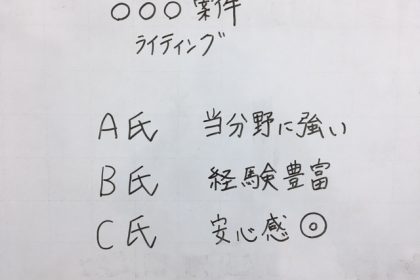 ○○○案件
ライティング
A氏 当分野に強い
B氏 経験豊富
C氏 安心感◎